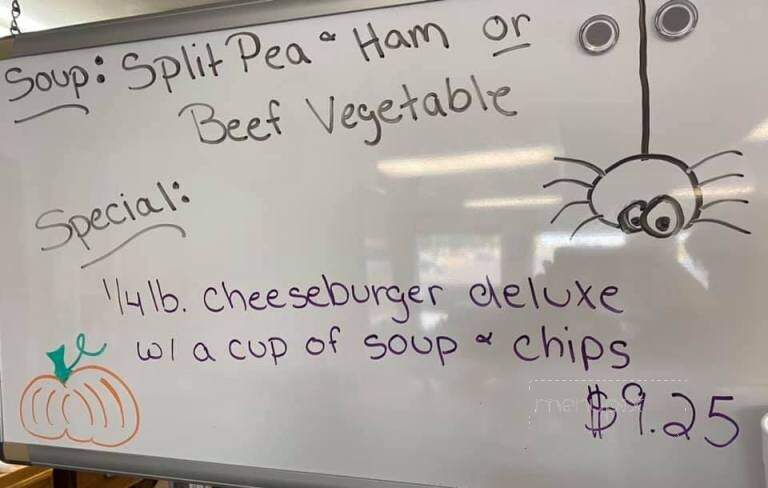 Soup: Split Pea & Ham or
Beef Vegetable
Special:
1/4 lb. cheeseburger deluxe
w/ a cup of soup & chips
$9.25